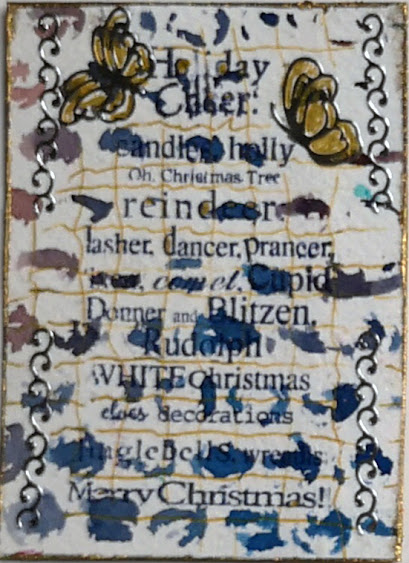 Holiday
Cheer!
candles holly
Oh, Christmas Tree
reindeer
dasher, dancer, prancer,
vixen, comet, Cupid
Donner and Blitzen,
Rudolph
WHITE christmas
elves decorations
JingleBeLLS, wreaths
Merry Christmas!!